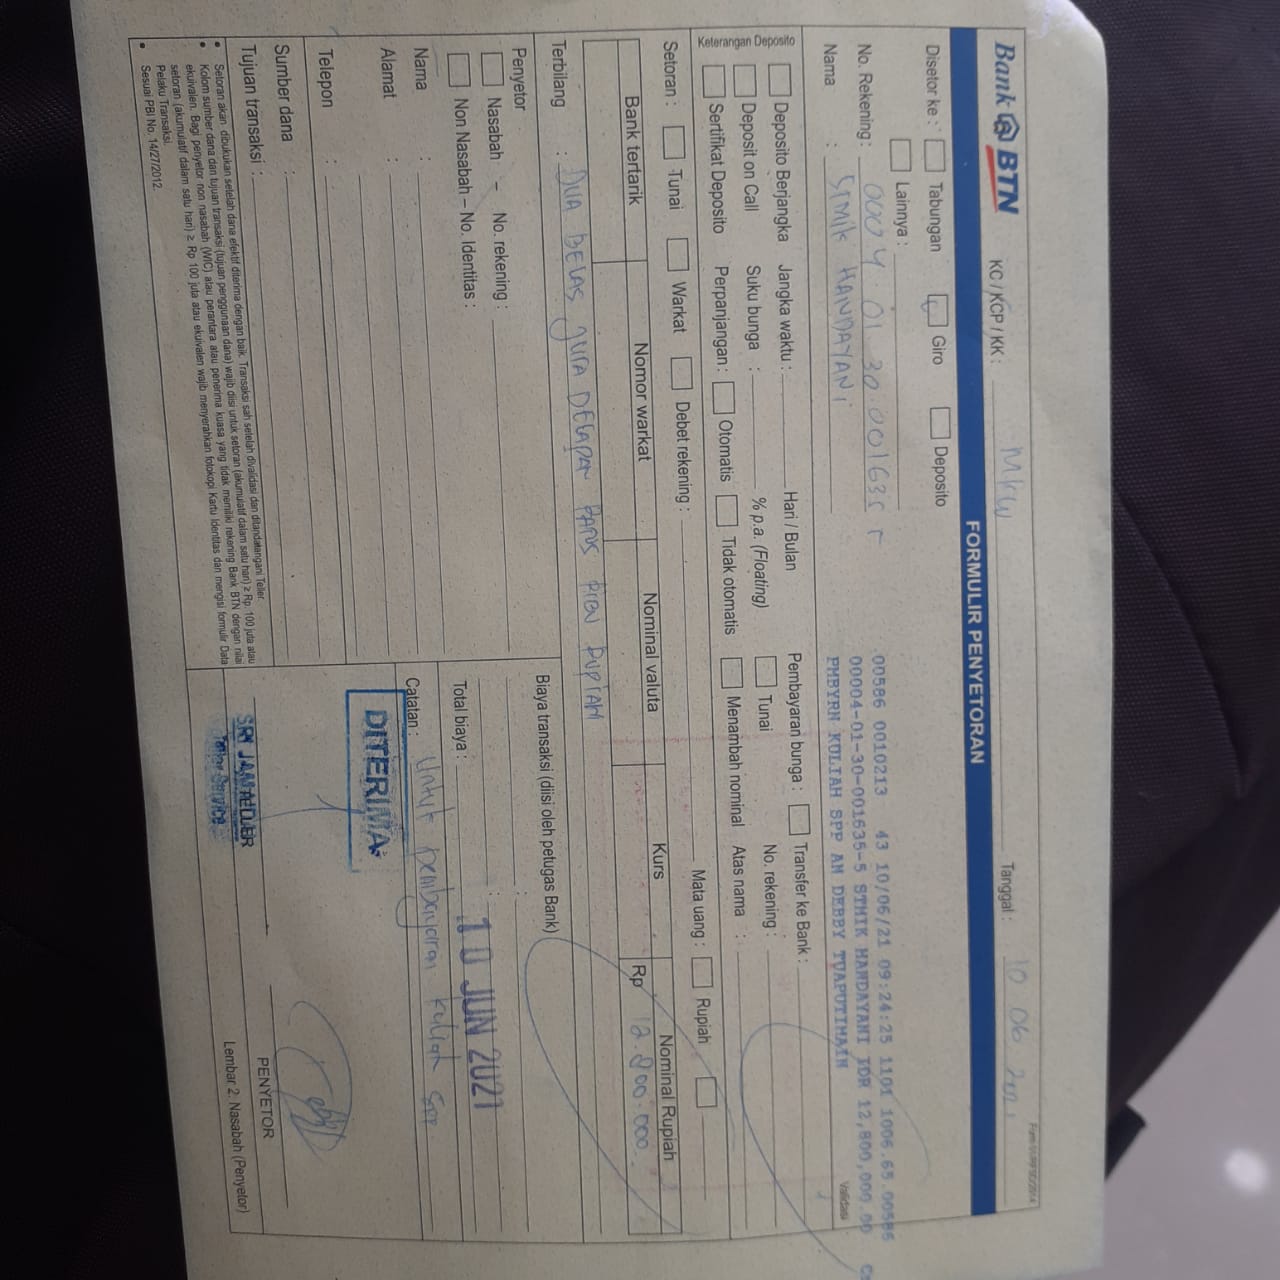 Bank BTN
KC / KCP / KK : MKW
Tanggal : 10 06 2021
FORMULIR PENYETORAN
Disetor ke : Tabungan Giro Deposito
Lainnya :
No. Rekening : 0004 01 30 001635 5
Nama : STMIK HANDAYANI
00586 0010213 43 10/06/21 09:24:25 1101 1006.65.00586
00004-01-30-001635-5 STMIK HANDAYANI IDR 12,800,000.00
PMBYRN KULIAH SPP AN DEBBY TUAPUTIMAIN
Validasi
Keterangan Deposito
Deposito Berjangka Jangka waktu : Hari / Bulan Pembayaran bunga : Transfer ke Bank :
Deposit on Call Suku bunga : % p.a. (Floating) Tunai No. rekening :
Sertifikat Deposito Perpanjangan : Otomatis Tidak otomatis Menambah nominal Atas nama :
Setoran : Tunai Warkat Debet rekening : Mata uang : Rupiah
Bank tertarik Nomor warkat Nominal valuta Kurs Nominal Rupiah
Rp 12.800.000
Terbilang : DUA BELAS JUTA DELAPAN RATUS RIBU RUPIAH
Penyetor
Nasabah – No. rekening :
Non Nasabah – No. Identitas :
Nama :
Alamat :
Telepon :
Sumber dana :
Tujuan transaksi :
Biaya transaksi (diisi oleh petugas Bank)
Total biaya :
10 JUN 2021
Catatan : Untuk pembayaran kuliah SPP.
DITERIMA
SRI JAMAEDJER
Teller Service
PENYETOR
Lembar 2. Nasabah (Penyetor)
• Setoran akan dibukukan setelah dana efektif diterima dengan baik. Transaksi sah setelah divalidasi dan ditandatangani Teller.
• Kolom sumber dana dan tujuan transaksi (tujuan penggunaan dana) wajib diisi untuk setoran (akumulatif dalam satu hari) ≥ Rp. 100 juta atau
ekuivalen. Bagi penyetor non nasabah (WIC) atau perantara atau penerima kuasa yang tidak memiliki rekening Bank BTN dengan nilai
setoran (akumulatif dalam satu hari) ≥ Rp 100 juta atau ekuivalen wajib menyerahkan fotokopi Kartu Identitas dan mengisi formulir Data
Pelaku Transaksi.
• Sesuai PBI No. 14/27/2012.